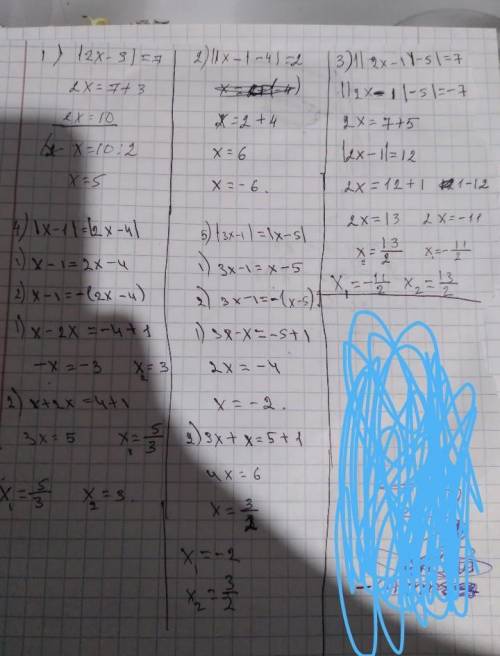 1) |2x-3|=7
2x=7+3
2x=10
x=10:2
x=5
2) ||x-|-4|=2
x=2+4
x=6
x=-6.
3) || 2x-1|-5|=7
||2x-1|-5|=-7
2x=7+5
|2x-1|=12
2x=12+1 1-12
2x=13 2x=-11
x=13/2 x=-11/2
x₁=-11/2 x₂=13/2
4) |x-1|=|2x-4|
1) x-1=2x-4
2) x-1=-(2x-4)
1) x-2x=-4+1
-x=-3 x₂=3
2) x+2x=4+1
3x=5 x₁=5/3
x₁=5/3 x₂=3.
5) |3x-1|=|x-5|
1) 3x-1=x-5
2) 3x-1=-(x-5)
1) 3x-x=-5+1
2x=-4
x=-2.
2) 3x+x=5+1
4x=6
x=3/2
x₁=-2
x₂=3/2